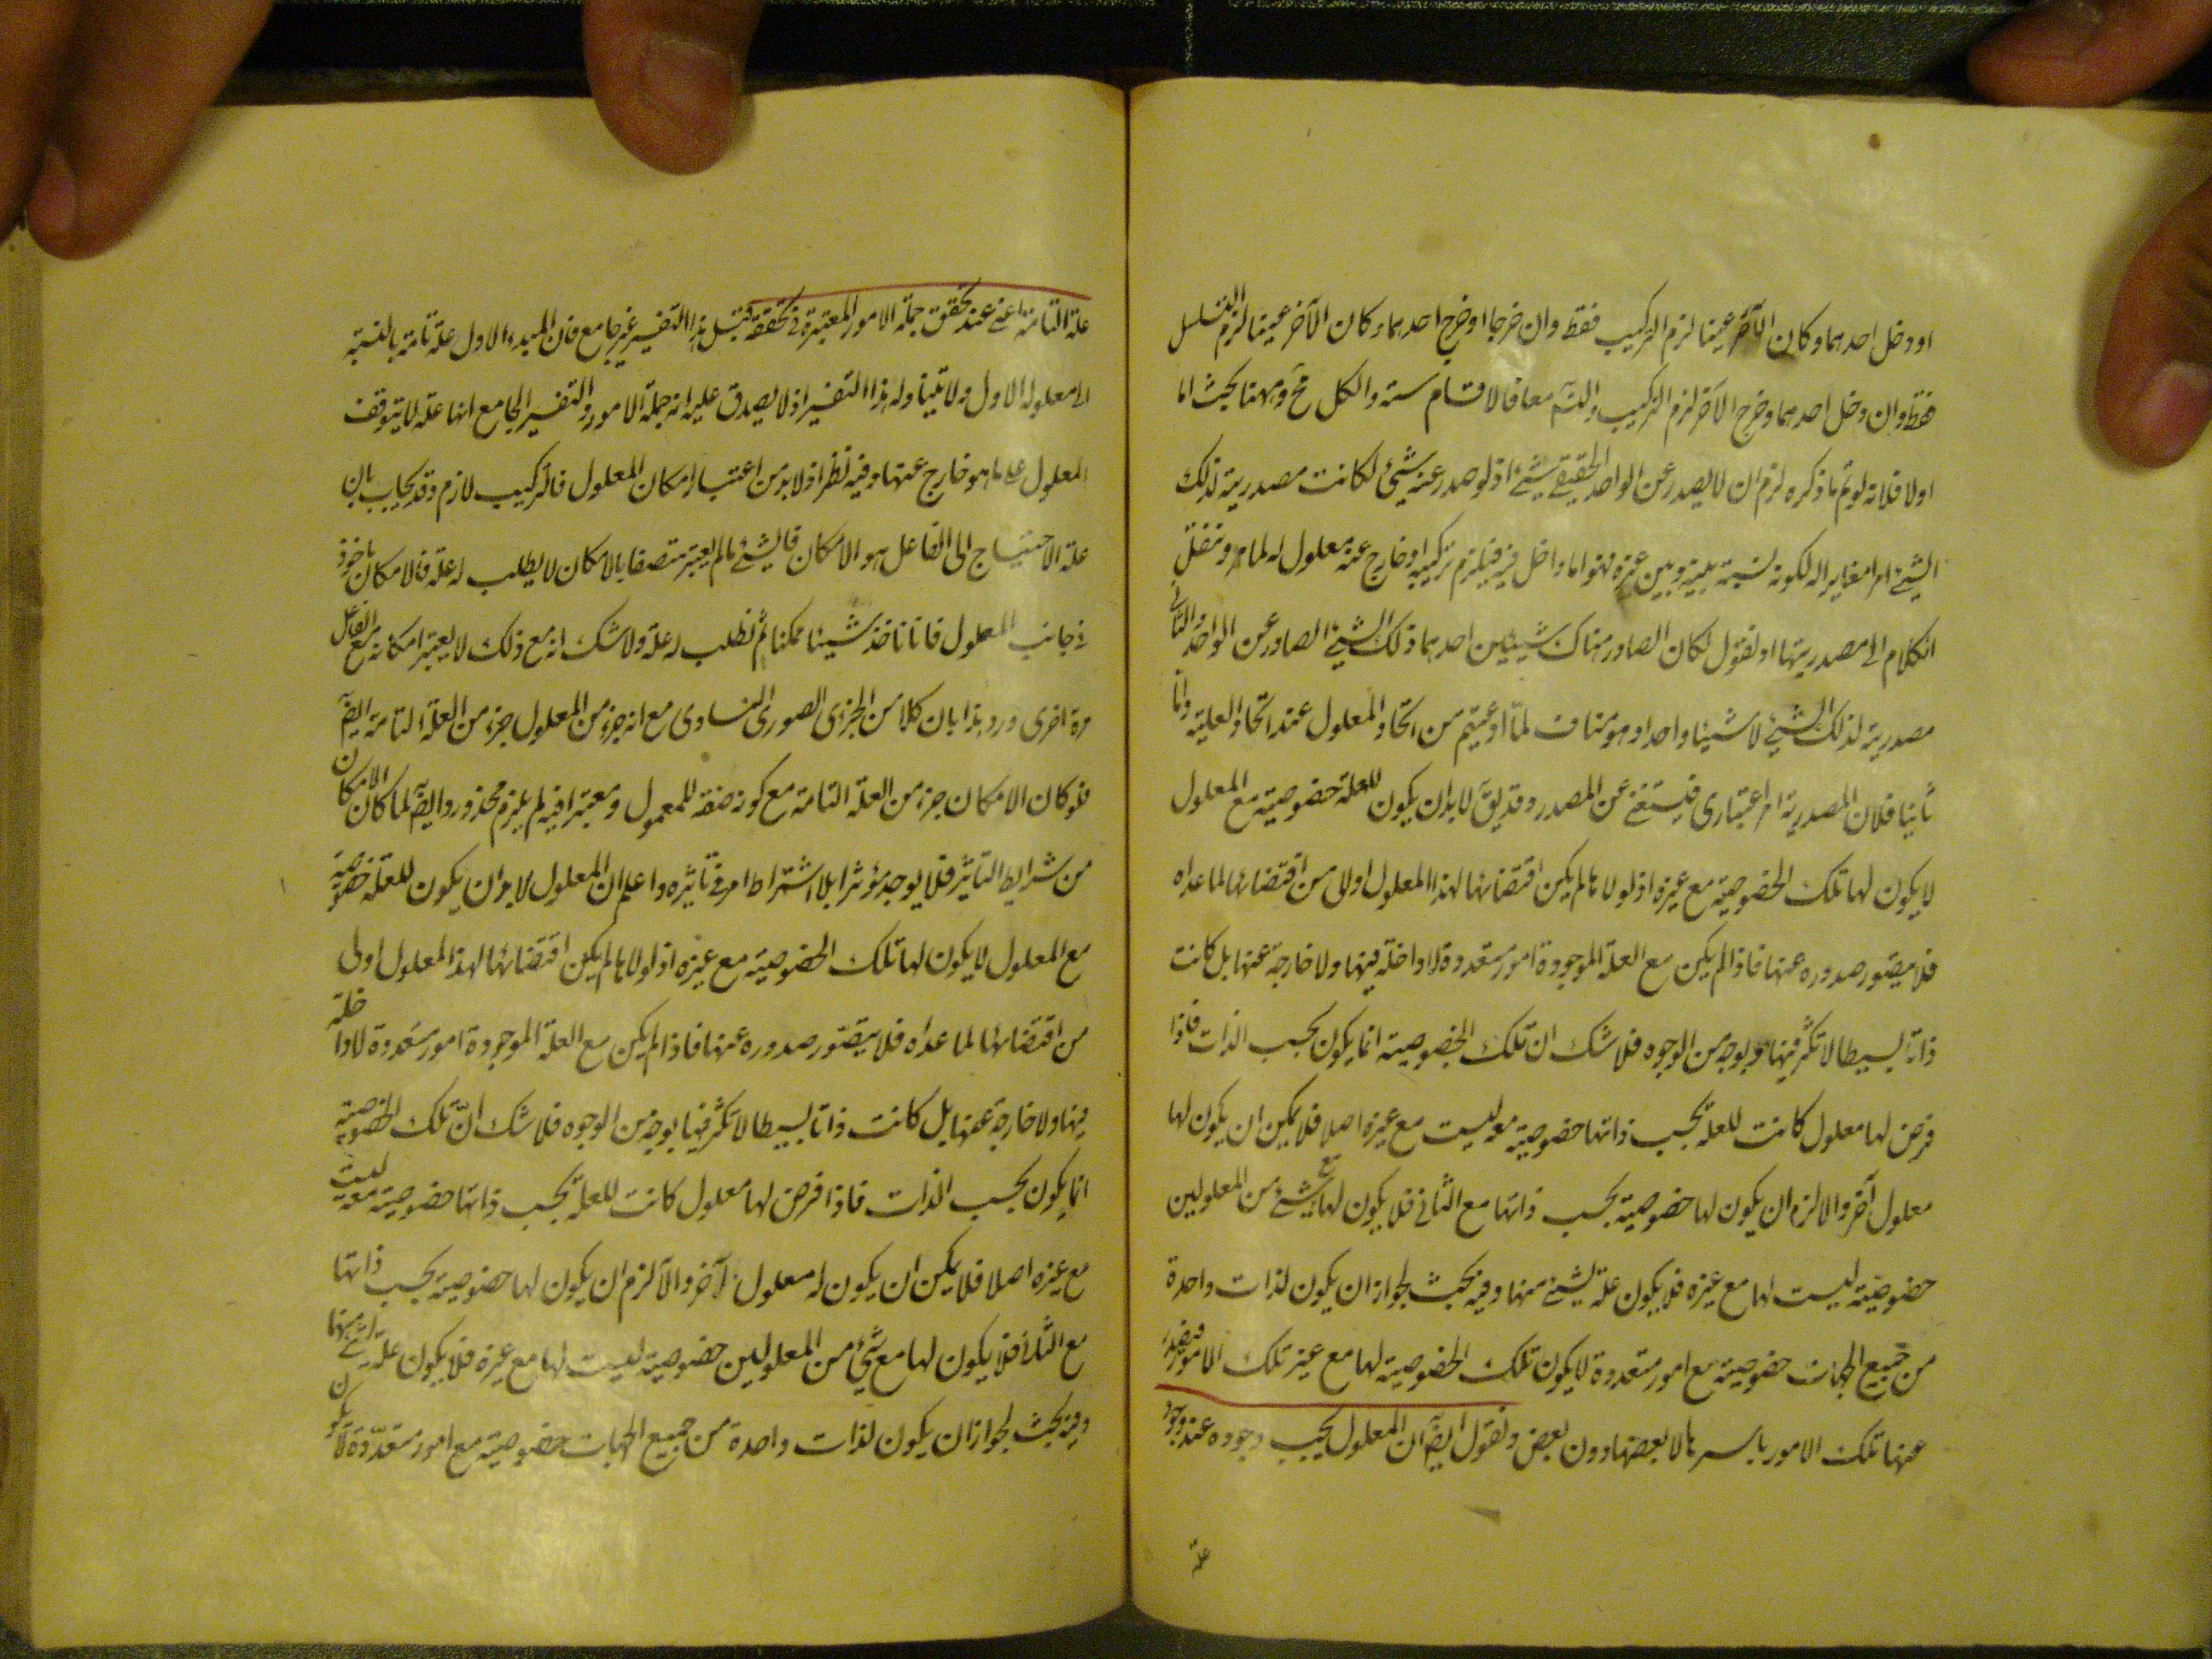 او دخل احدهما وكان الآخر عينا لزم التركيب فقط وان خرجا او خرج احدهما وكان الآخر عينا لزم التسلسل
فقط وان دخل احدهما وخرج الآخر لزم التركيب والتسّم معا فالاقسام ستة والكل مح وههنا بحث اما
اولا فلانه لو تم ما ذكره لزم ان لا يصدر عن الواحد الحقيقي شيئ اذ لو صدر عنه شيئ لكانت مصدريته لذلك
الشيئ امرا مغايرا له لكونه نسبة بينه وبين غيره فهو اما داخل فيه فيلزم تركيبه او خارج عنه معلول له لما مر وننقل
الكلام الى مصدريتها او نقول لكان الصادر هناك شيئين احدهما ذلك الشيئ الصادر عن الواحد والثاني
مصدريته لذلك الشيئ لا شيئا واحدا وهو مناف لما ادعيتم من اتحاد المعلول عند اتحاد العلية واما
ثانيا فلان المصدرية امر اعتباري فيستغني عن المصدر وقد يق لا بد ان يكون للعلة خصوصية مع المعلول
لا يكون لها تلك الخصوصية مع غيره اذ لولاها لم يكن اقتضائها لهذا المعلول اولى من اقتضائها لما عداه
فلا يتصور صدوره عنها فاذا لم يكن مع العلة الموجودة امور متعددة لا داخلة فيها ولا خارجة عنها بل كانت
ذاتا بسيطا لا تكثر فيها بوجه من الوجوه فلا شك ان تلك الخصوصية انما يكون بحسب الذات فاذا
فرض لها معلول كانت للعلة بحسب ذاتها خصوصية معه ليست مع غيره اصلا فلا يمكن ان يكون لها
معلول آخر والا لزم ان يكون لها خصوصية بحسب ذاتها مع الثاني فلا يكون لها مع شيئ من المعلولين
خصوصية ليست لها مع غيره فلا يكون علة لشيئ منهما وفيه بحث لجواز ان يكون لذات واحدة
من جميع الجهات خصوصية مع امور متعددة لا يكون تلك الخصوصية لها مع غير تلك الامور فيصدر
عنها تلك الامور باسرها لا بعضها دون بعض ونقول ايضا ان المعلول يجب وجوده عند وجود
علة
علة التامة اعني عند تحقق جملة الامور المعتبرة في تحققه قيل هذا التفسير غير جامع فان المبدء الاول علة تامة بالنسبة
الى معلوله الاول ولا يتناوله هذا التفسير اذ لا يصدق عليه انه جملة الامور والتفسير الجامع انها علة لا يتوقف
المعلول على ما هو خارج عنها وفيه نظر اذ لا بد من اعتبار امكان المعلول فالتركيب لازم وقد يجاب بان
علة الاحتياج الى الفاعل هو الامكان فالشيئ ما لم يعتبر متصفا بالامكان لا يطلب له علة فالامكان ماخوذ
في جانب المعلول فانا ناخذ شيئا ممكنا ثم نطلب له علة ولا شك انه مع ذلك لا يعتبر امكانه مع الفاعل
مرة اخرى ورد هذا بان كلا من الجزئى الصورى والمادى مع انه جزء من المعلول جزء من العلة التامة ايضا
فلو كان الامكان جزء من العلة التامة مع كونه صفة للمعلول ومعتبرا فيه لم يلزم محذور وايضا لما كان الامكان
من شرايط التاثير فلا يوجد مؤثر بلا اشتراط امر في تاثيره واعلم ان المعلول لا بد ان يكون للعلة خصوصية
مع المعلول لا يكون لها تلك الخصوصية مع غيره اذ لولاها لم يكن اقتضائها لهذا المعلول اولى
من اقتضائها لما عداه فلا يتصور صدوره عنها فاذا لم يكن مع العلة الموجودة امور متعددة لا داخلة
فيها ولا خارجة عنها بل كانت ذاتا بسيطا لا تكثر فيها بوجه من الوجوه فلا شك انّ تلك الخصوصية
انما يكون بحسب الذات فاذا فرض لها معلول كانت للعلة بحسب ذاتها خصوصية معه ليست
مع غيره اصلا فلا يمكن ان يكون له معلول آخر والا لزم ان يكون لها خصوصية بحسب ذاتها
مع الثاني فلا يكون لها مع شيئ من المعلولين خصوصية ليست لها مع غيره فلا يكون علة لشيئ منهما
وفيه بحث لجواز ان يكون لذات واحدة من جميع الجهات خصوصية مع امور متعدّدة لا يكون